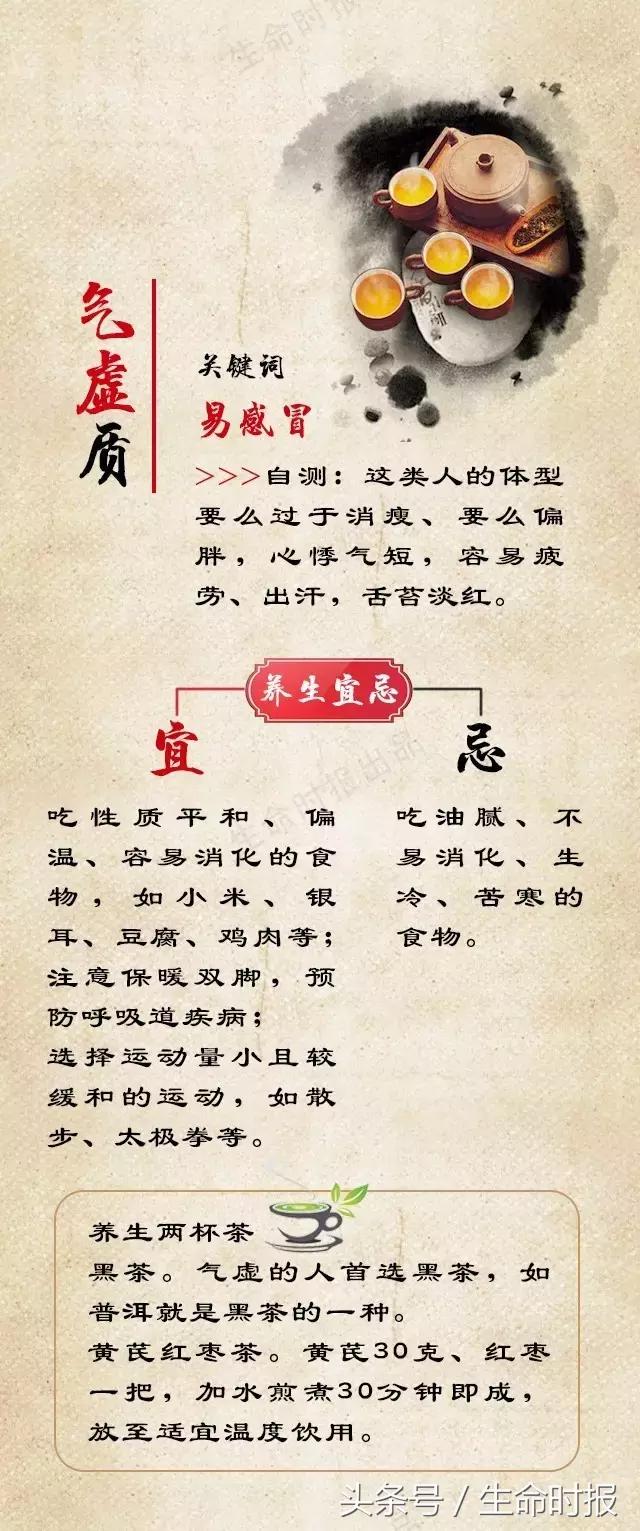 生命时报
气虚质
关键词
易感冒
>>>自测：这类人的体型
要么过于消瘦、要么偏
胖，心悸气短，容易疲
劳、出汗，舌苔淡红。
养生宜忌
宜
忌
吃性质平和、偏
温、容易消化的食
物，如小米、银
耳、豆腐、鸡肉等；
注意保暖双脚，预
防呼吸道疾病；
选择运动量小且较
缓和的运动，如散
步、太极拳等。
吃油腻、不
易消化、生
冷、苦寒的
食物。
生命时报出品
养生两杯茶
黑茶。气虚的人首选黑茶，如
普洱就是黑茶的一种。
黄芪红枣茶。黄芪30克、红枣
一把，加水煎煮30分钟即成，
放至适宜温度饮用。
头条号 / 生命时报